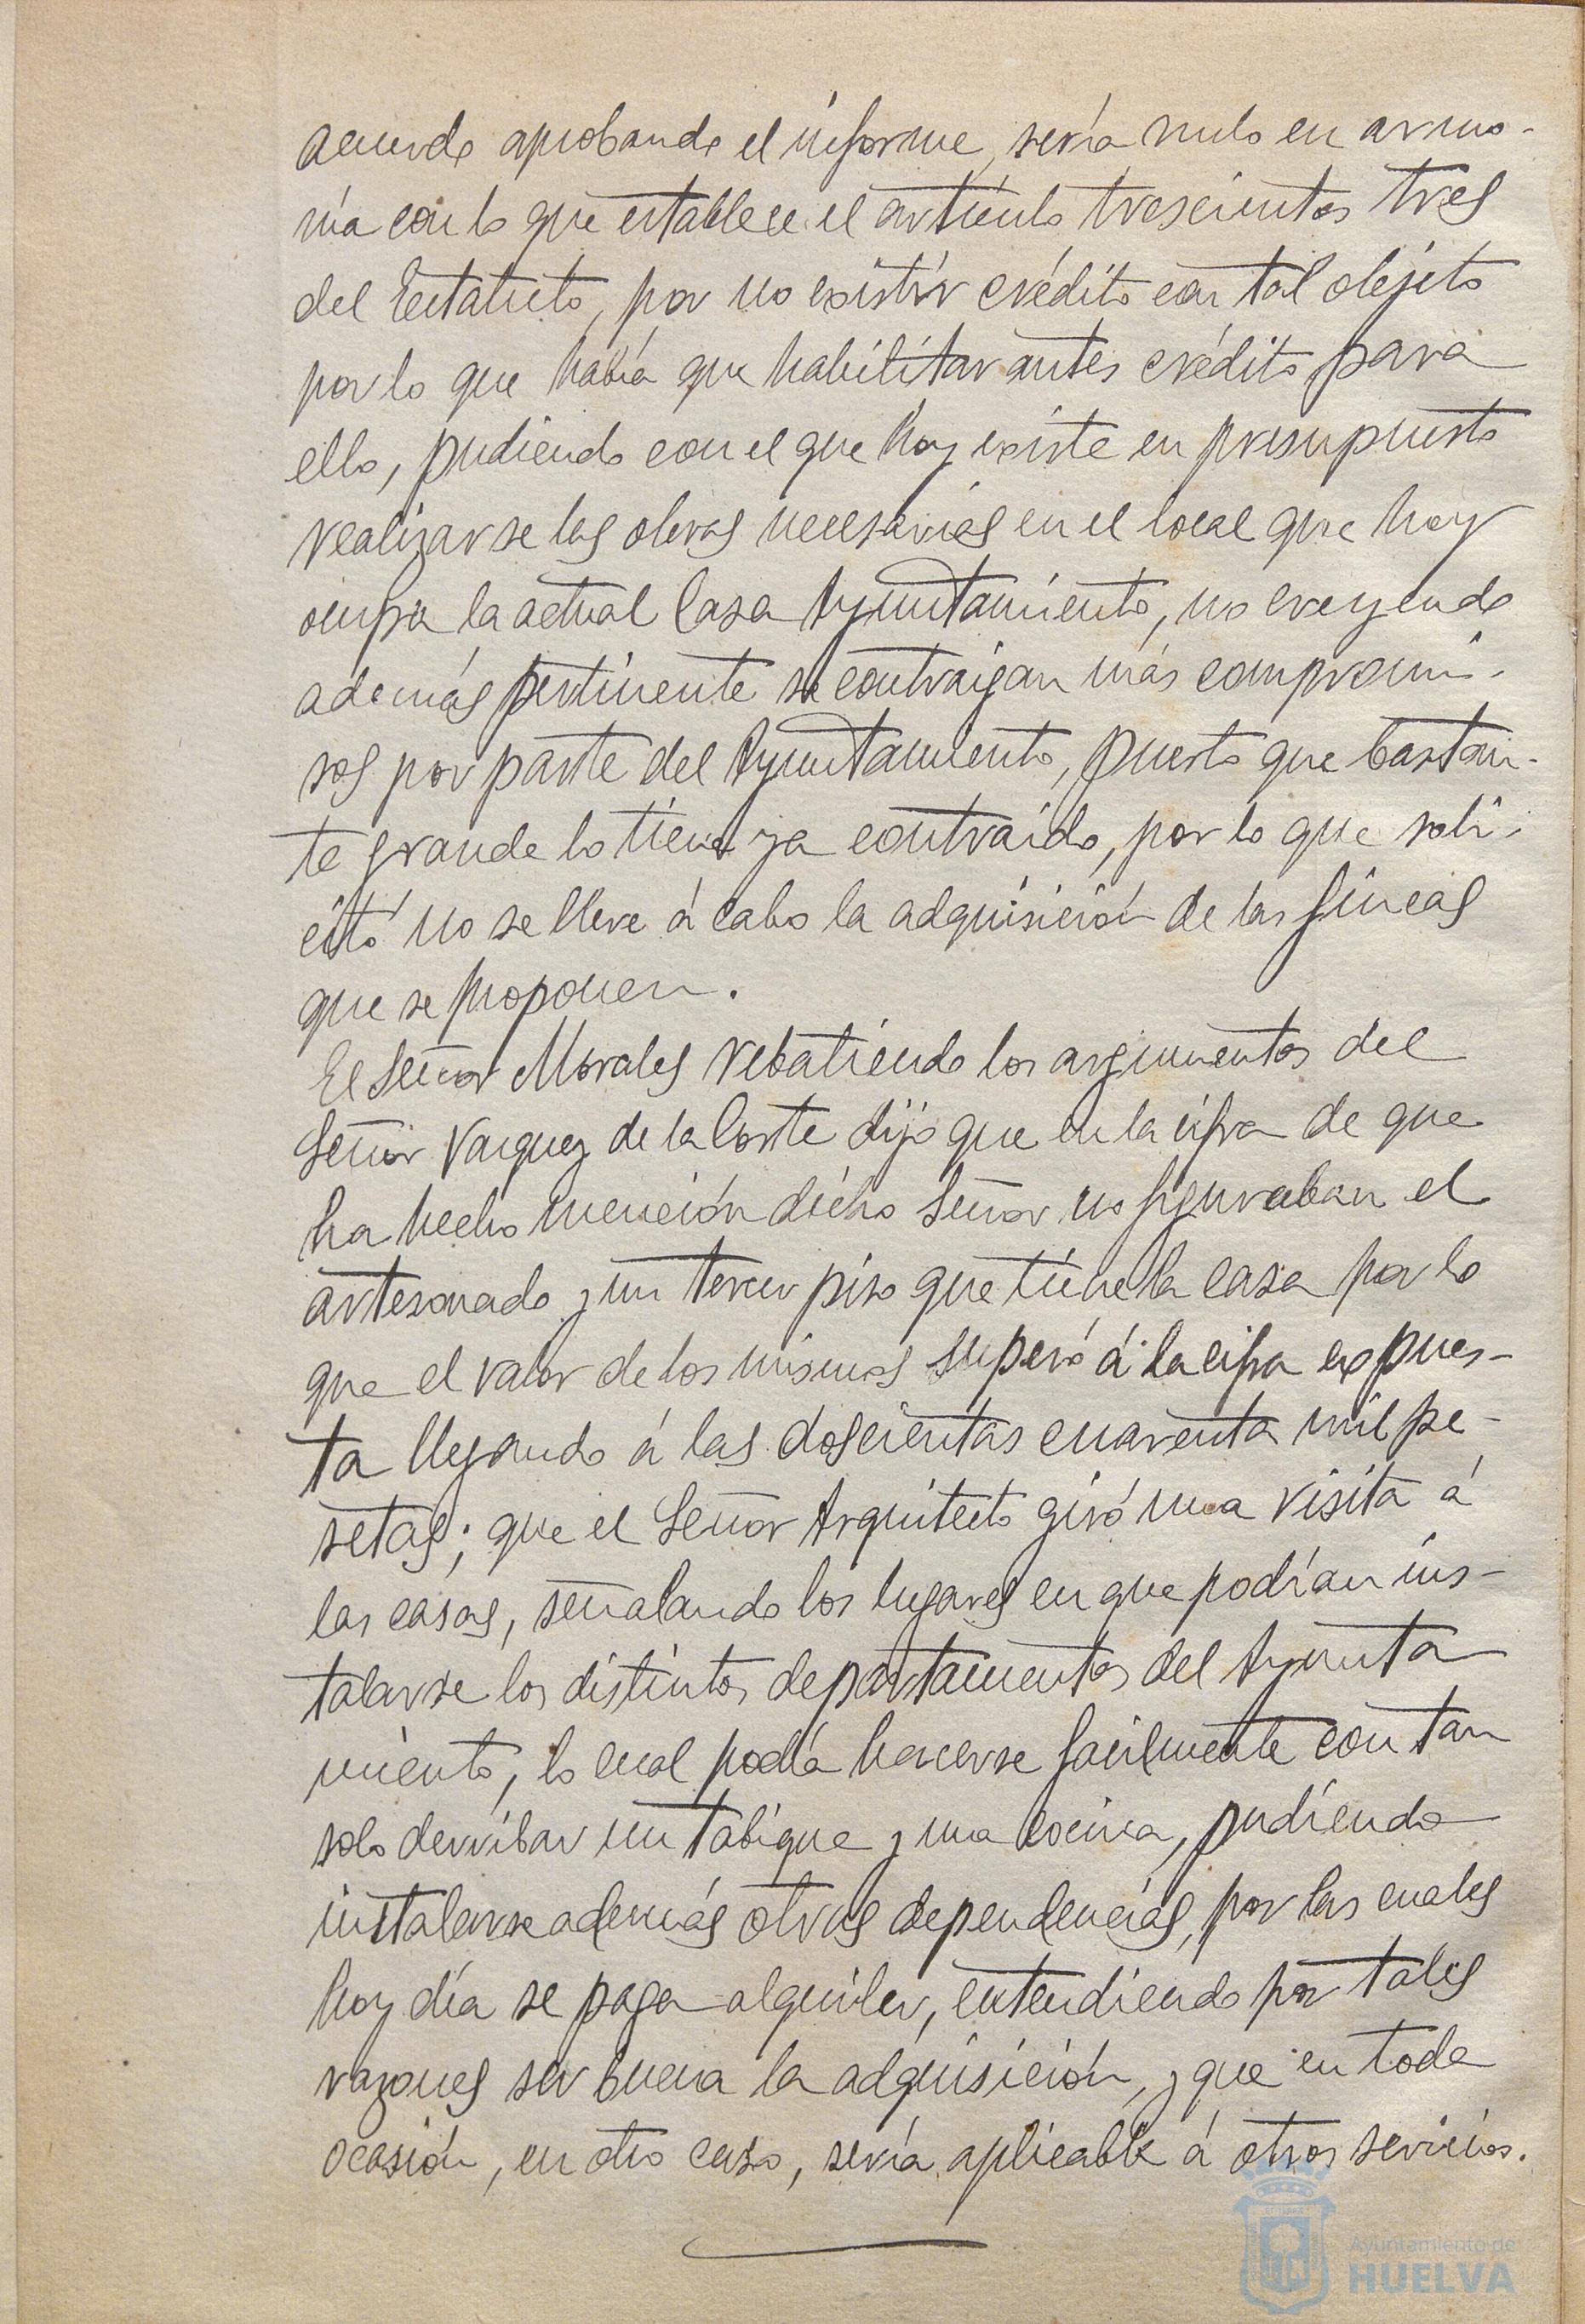 acuerdo aprobando el informe, sería nulo en armo-
nía con lo que establece el artículo trescientos tres
del Estatuto, por no existir crédito con tal objeto
por lo que había que habilitar antes crédito para
ello, pudiendo con el que hoy existe en presupuesto
realizarse las obras necesarias en el local que hoy
ocupa la actual Casa Ayuntamiento, no creyendo
además pertinente se contraigan más compromi-
sos por parte del Ayuntamiento, puesto que bastan-
te grande lo tiene ya contraído, por lo que soli-
citó no se lleve á cabo la adquisición de las fincas
que se proponen.
El Señor Morales rebatiendo los argumentos del
Señor Vazquez de la Corte dijo que en la cifra de que
ha hecho mención dicho Señor no figuraban el
artesonado y un tercer piso que tiene la casa por lo
que el valor de los mismos superó á la cifra expues-
ta llegando á las doscientas cuarenta mil pe-
setas; que el Señor Arquitecto giró una visita á
las casas, señalando los lugares en que podían ins-
talarse los distintos departamentos del Ayunta
miento, lo cual podía hacerse facilmente con tan
solo derribar un tabique y una cocina, pudiendo
instalarse además otras dependencias, por las cuales
hoy día se paga alquiler, entendiendo por tales
razones ser buena la adquisición, y que en toda
ocasión, en otro caso, sería aplicable á otros servicios.
Ayuntamiento de
HUELVA